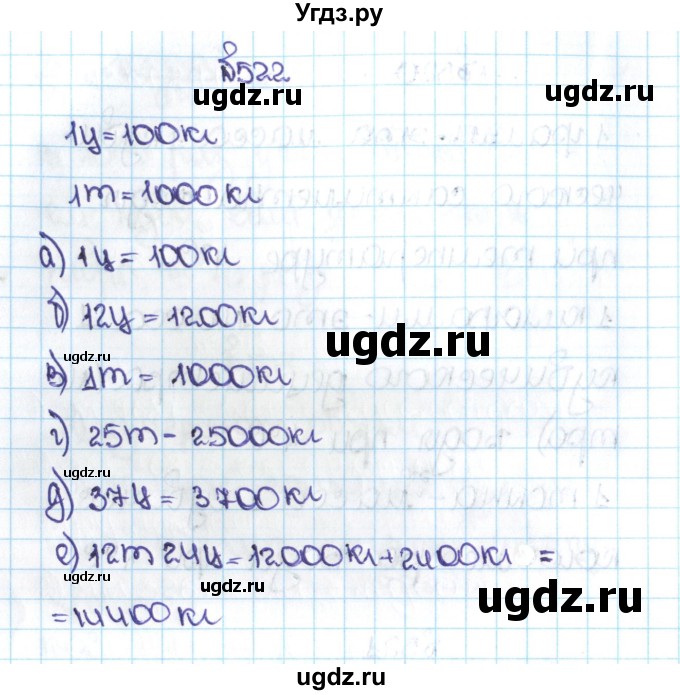 Угдз.ру
№522
ugdz.ru
1ц=100кг
1т=1000кг
ugdz.ru
а) 1ц=100кг
ugdz.ru
б) 12ц=1200кг
ugdz.ru
ugdz.ru
в) 1т=1000кг
г) 25т-25000кг
ugdz.ru
ugdz.ru
д) 37ц=3700кг
ugdz.ru
е) 12т 24ц=12000кг+2400кг =
ugdz.ru
=14400кг
ugdz.ru
ugdz.ru